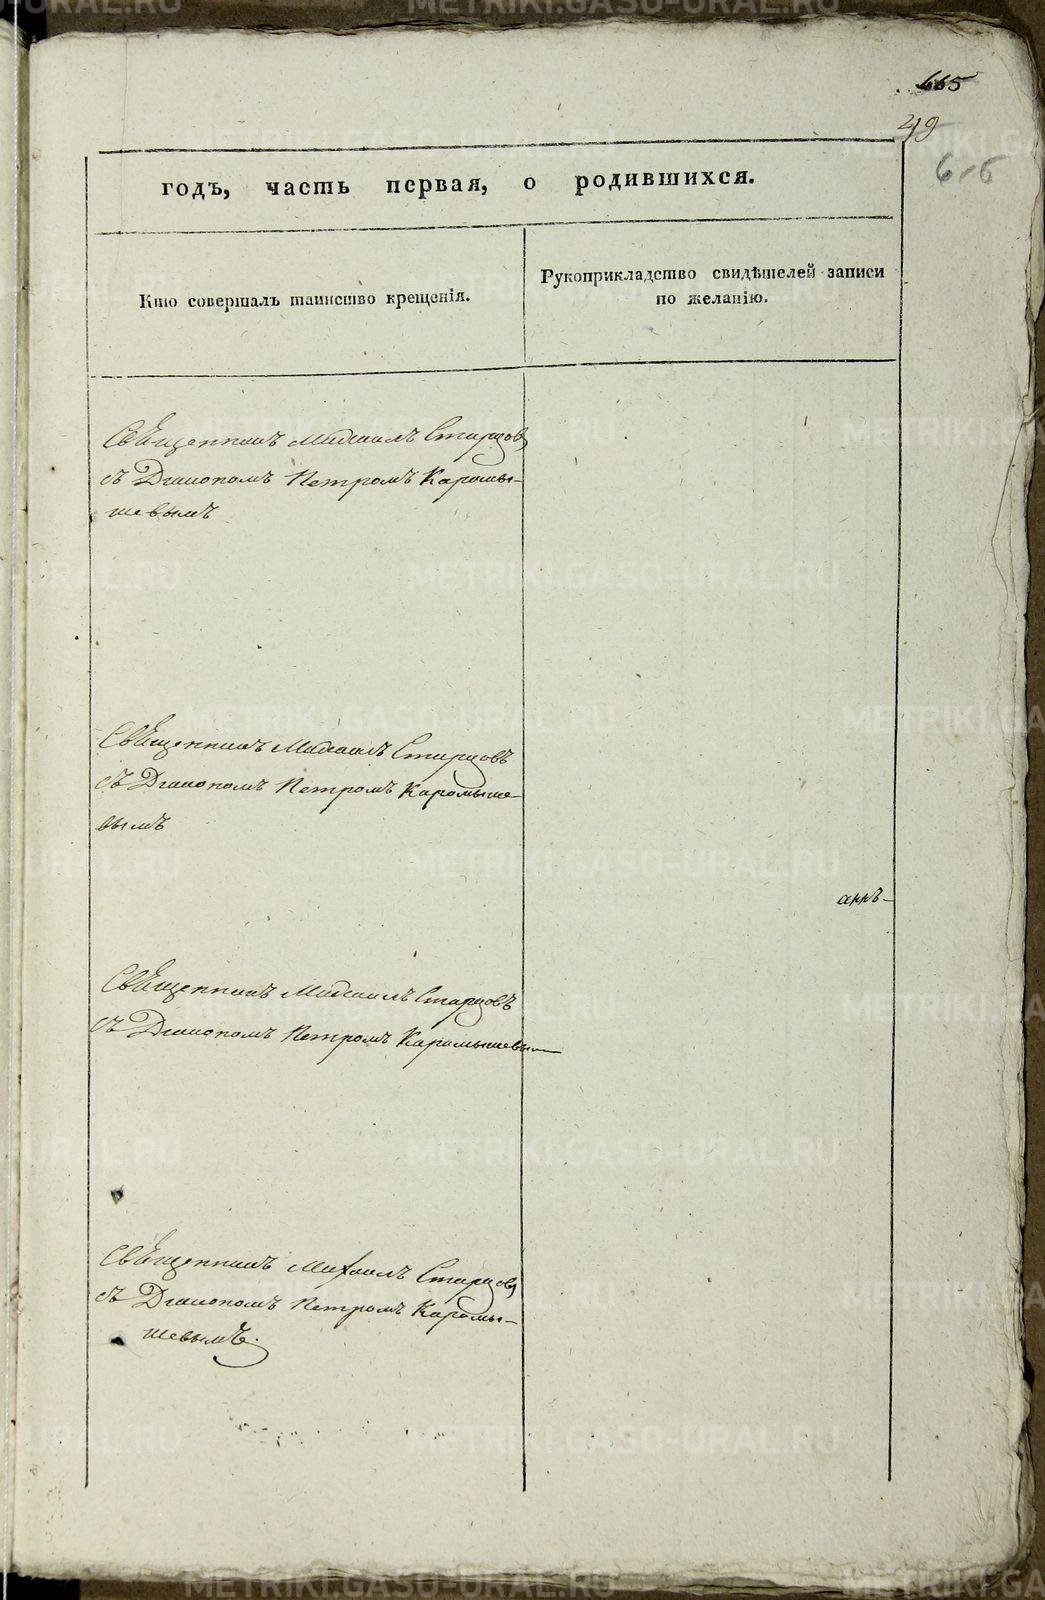 665
49
годъ, часть первая, о родившихся.
Кто совершалъ таинство крещенія.
Рукоприкладство свидѣтелей записи
по желанію.
Священникъ Михаилъ Старцовъ
съ Дьякономъ Петромъ Карамы-
шевымъ
Священникъ Михаилъ Старцовъ
съ Дьякономъ Петромъ Карамыше-
вымъ
аннъ-
Священникъ Михаилъ Старцовъ
съ Дьякономъ Петромъ Карамышевы
Священникъ Михаилъ Старцовъ
съ Дьякономъ Петромъ Карамы-
шевымъ.
METRIKI.GASO-URAL.RU